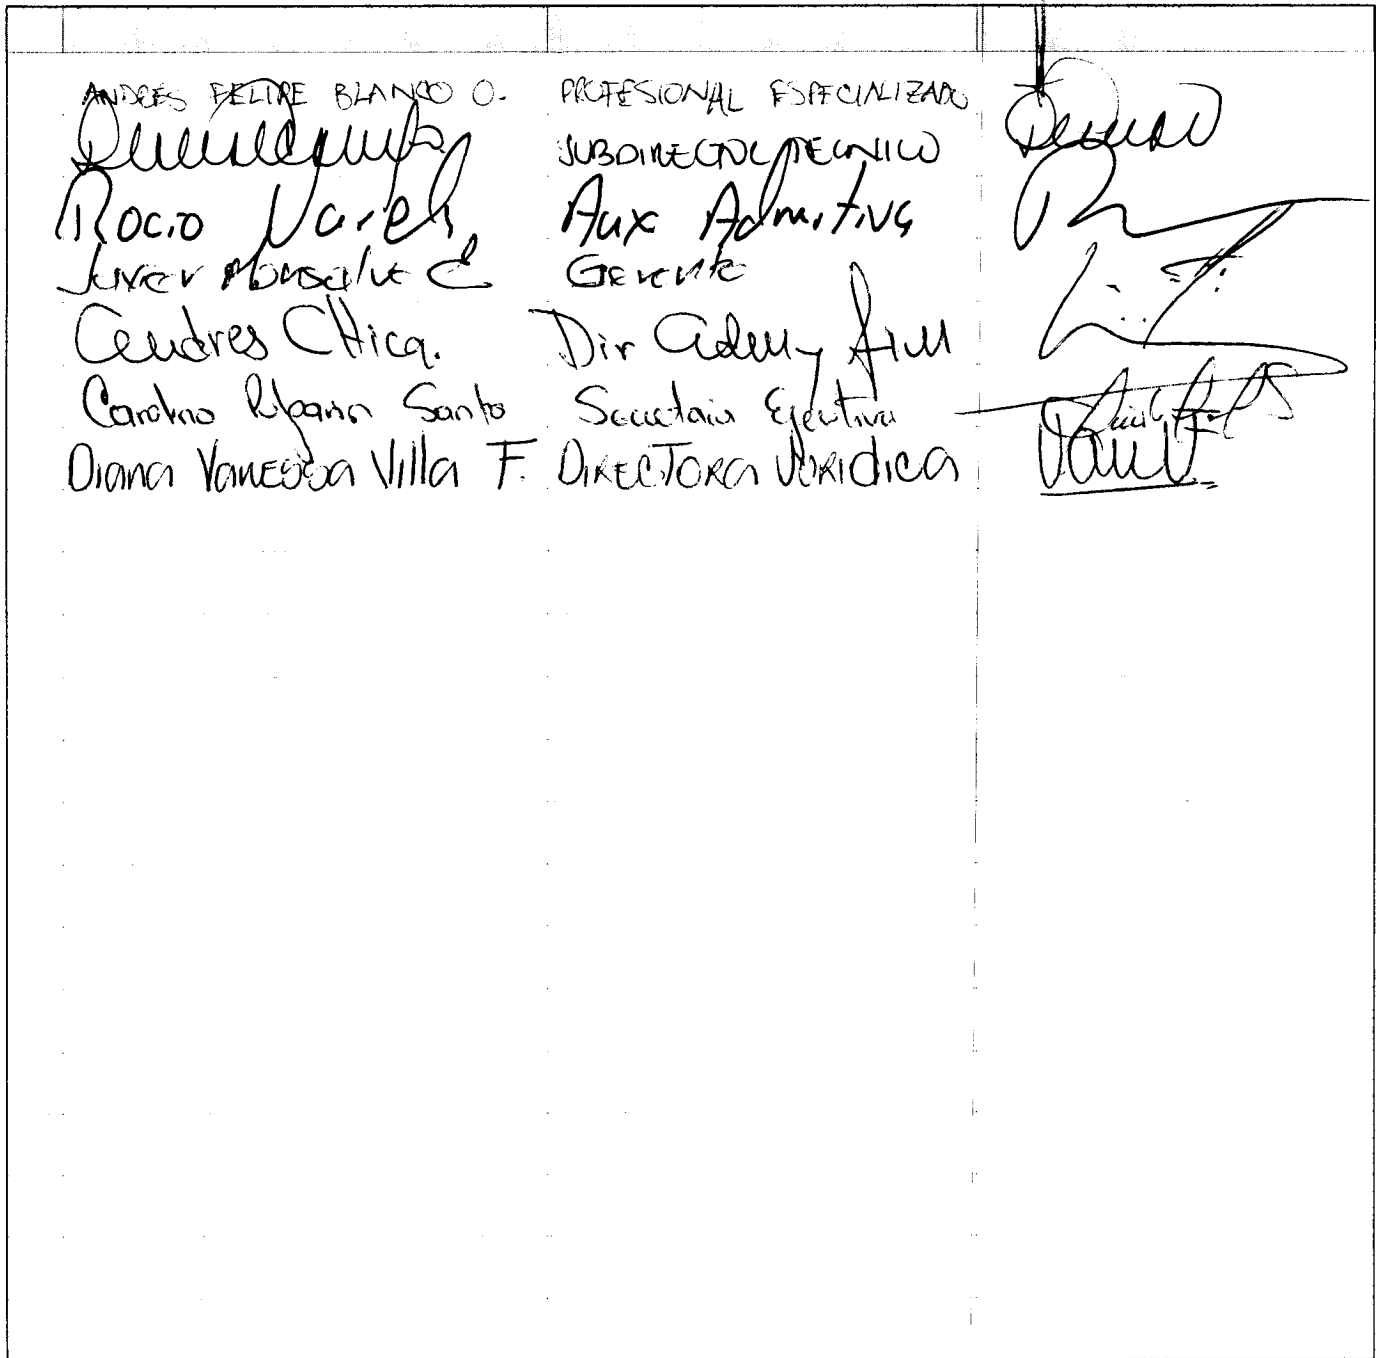 ANDRES FELIPE BLANCO O. PROFESIONAL ESPECIALIZADO
SUBDIRECTOR TECNICO
Rocio Varela Aux Admitiva
Javier Monsalve C Gerente
Andres Chica. Dir Adm y fin
Carolina Santo Secretaria Ejecutiva
Diana Vanessa Villa F. DIRECTORA JURIDICA